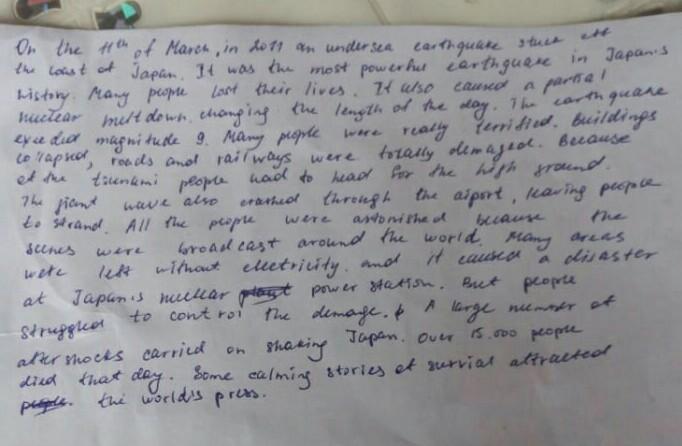 On the 11th of March, in 2011 an undersea earthquake stuck off
the coast of Japan. It was the most powerful earthquake in Japan's
history. Many people lost their lives. It also caused a partial
nuclear meltdown, changing the length of the day. The earthquake
exceded magnitude 9. Many people were really terrified. Buildings
collapsed, roads and railways were totally demaged. Because
of the tsunami people had to head for the high ground.
The giant wave also crashed through the aiport, leaving people
to strand. All the people were astonished because the
scenes were broadcast around the world. Many areas
were left without electricity. and it caused a disaster
at Japan's nuclear plant power station. But people
struggled to control the demage. A large number of
aftershocks carried on shaking Japan. Over 15.000 people
died that day. Some calming stories of survial attracted
people. the world's press.